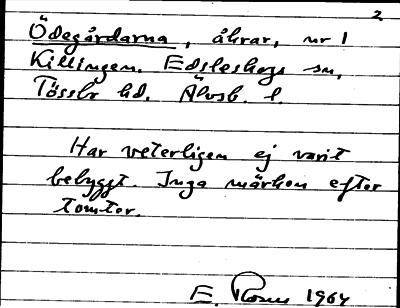 2
Ödegårdarna, åkrar, nr 1
Killingen. Edsleskogs sn,
Tössbo hd. Älvsb. l.
Har veterligen ej varit
bebyggt. Inga märken efter
tomter.
E. Rosén 1964